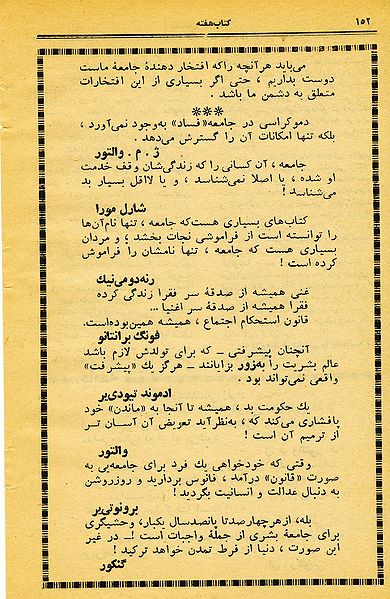 ۱۵۲
کتاب هفته
می‌باید هر آنچه را که افتخار دهندهٔ جامعهٔ ماست
دوست بداریم ، حتی اگر بسیاری از این افتخارات
متعلق به دشمن ما باشد .
***
دموکراسی در جامعه «فساد» به‌وجود نمی‌آورد ،
بلکه تنها امکانات آن را گسترش می‌دهد .
ژ . م . والتور
جامعه ، آن کسانی را که زندگی‌شان وقف خدمت
او شده ، یا اصلا نمی‌شناسد ، و یا لااقل بسیار بد
می‌شناسد !
شارل مورا
کتاب‌های بسیاری هست‌که جامعه ، تنها نام‌آن‌ها
را توانسته است از فراموشی نجات بخشد ، و مردان
بسیاری هست که جامعه ، تنها نامشان را فراموش
کرده است !
رنه‌دومی‌نیك
غنی همیشه از صدقهٔ سر فقرا زندگی کرده
فقرا همیشه از صدقهٔ سر اغنیا ...
قانون استحکام اجتماع ، همیشه همین‌بوده‌است.
فونگ برانتانو
آنچنان پیشرفتی ــ که برای تولدش لازم باشد
عالم بشریت را به‌زور بزایانند ــ هرگز یك «پیشرفت»
واقعی نمی‌تواند بود .
ادموند تیودی‌یر
یك حکومت بد ، همیشه تا آنجا به «ماندن» خود
پافشاری می‌کند که ، به‌نظر آید تعویض آن آسان تــر
از ترمیم آن است !
والتور
وقتی که خودخواهی یك فرد برای جامعه‌یی به
صورت «قانون» درآمد ، فانوس بردارید و روزروشن
به دنبال عدالت و انسانیت بگردید !
برونوتی‌یر
بله، ازهرچهارصدتا پانصدسال یکبار، وحشیگری
برای جامعهٔ بشری از جملهٔ واجبات است !ــ در غیر
این صورت ، دنیا از فرط تمدن خواهد ترکید !
گنکور